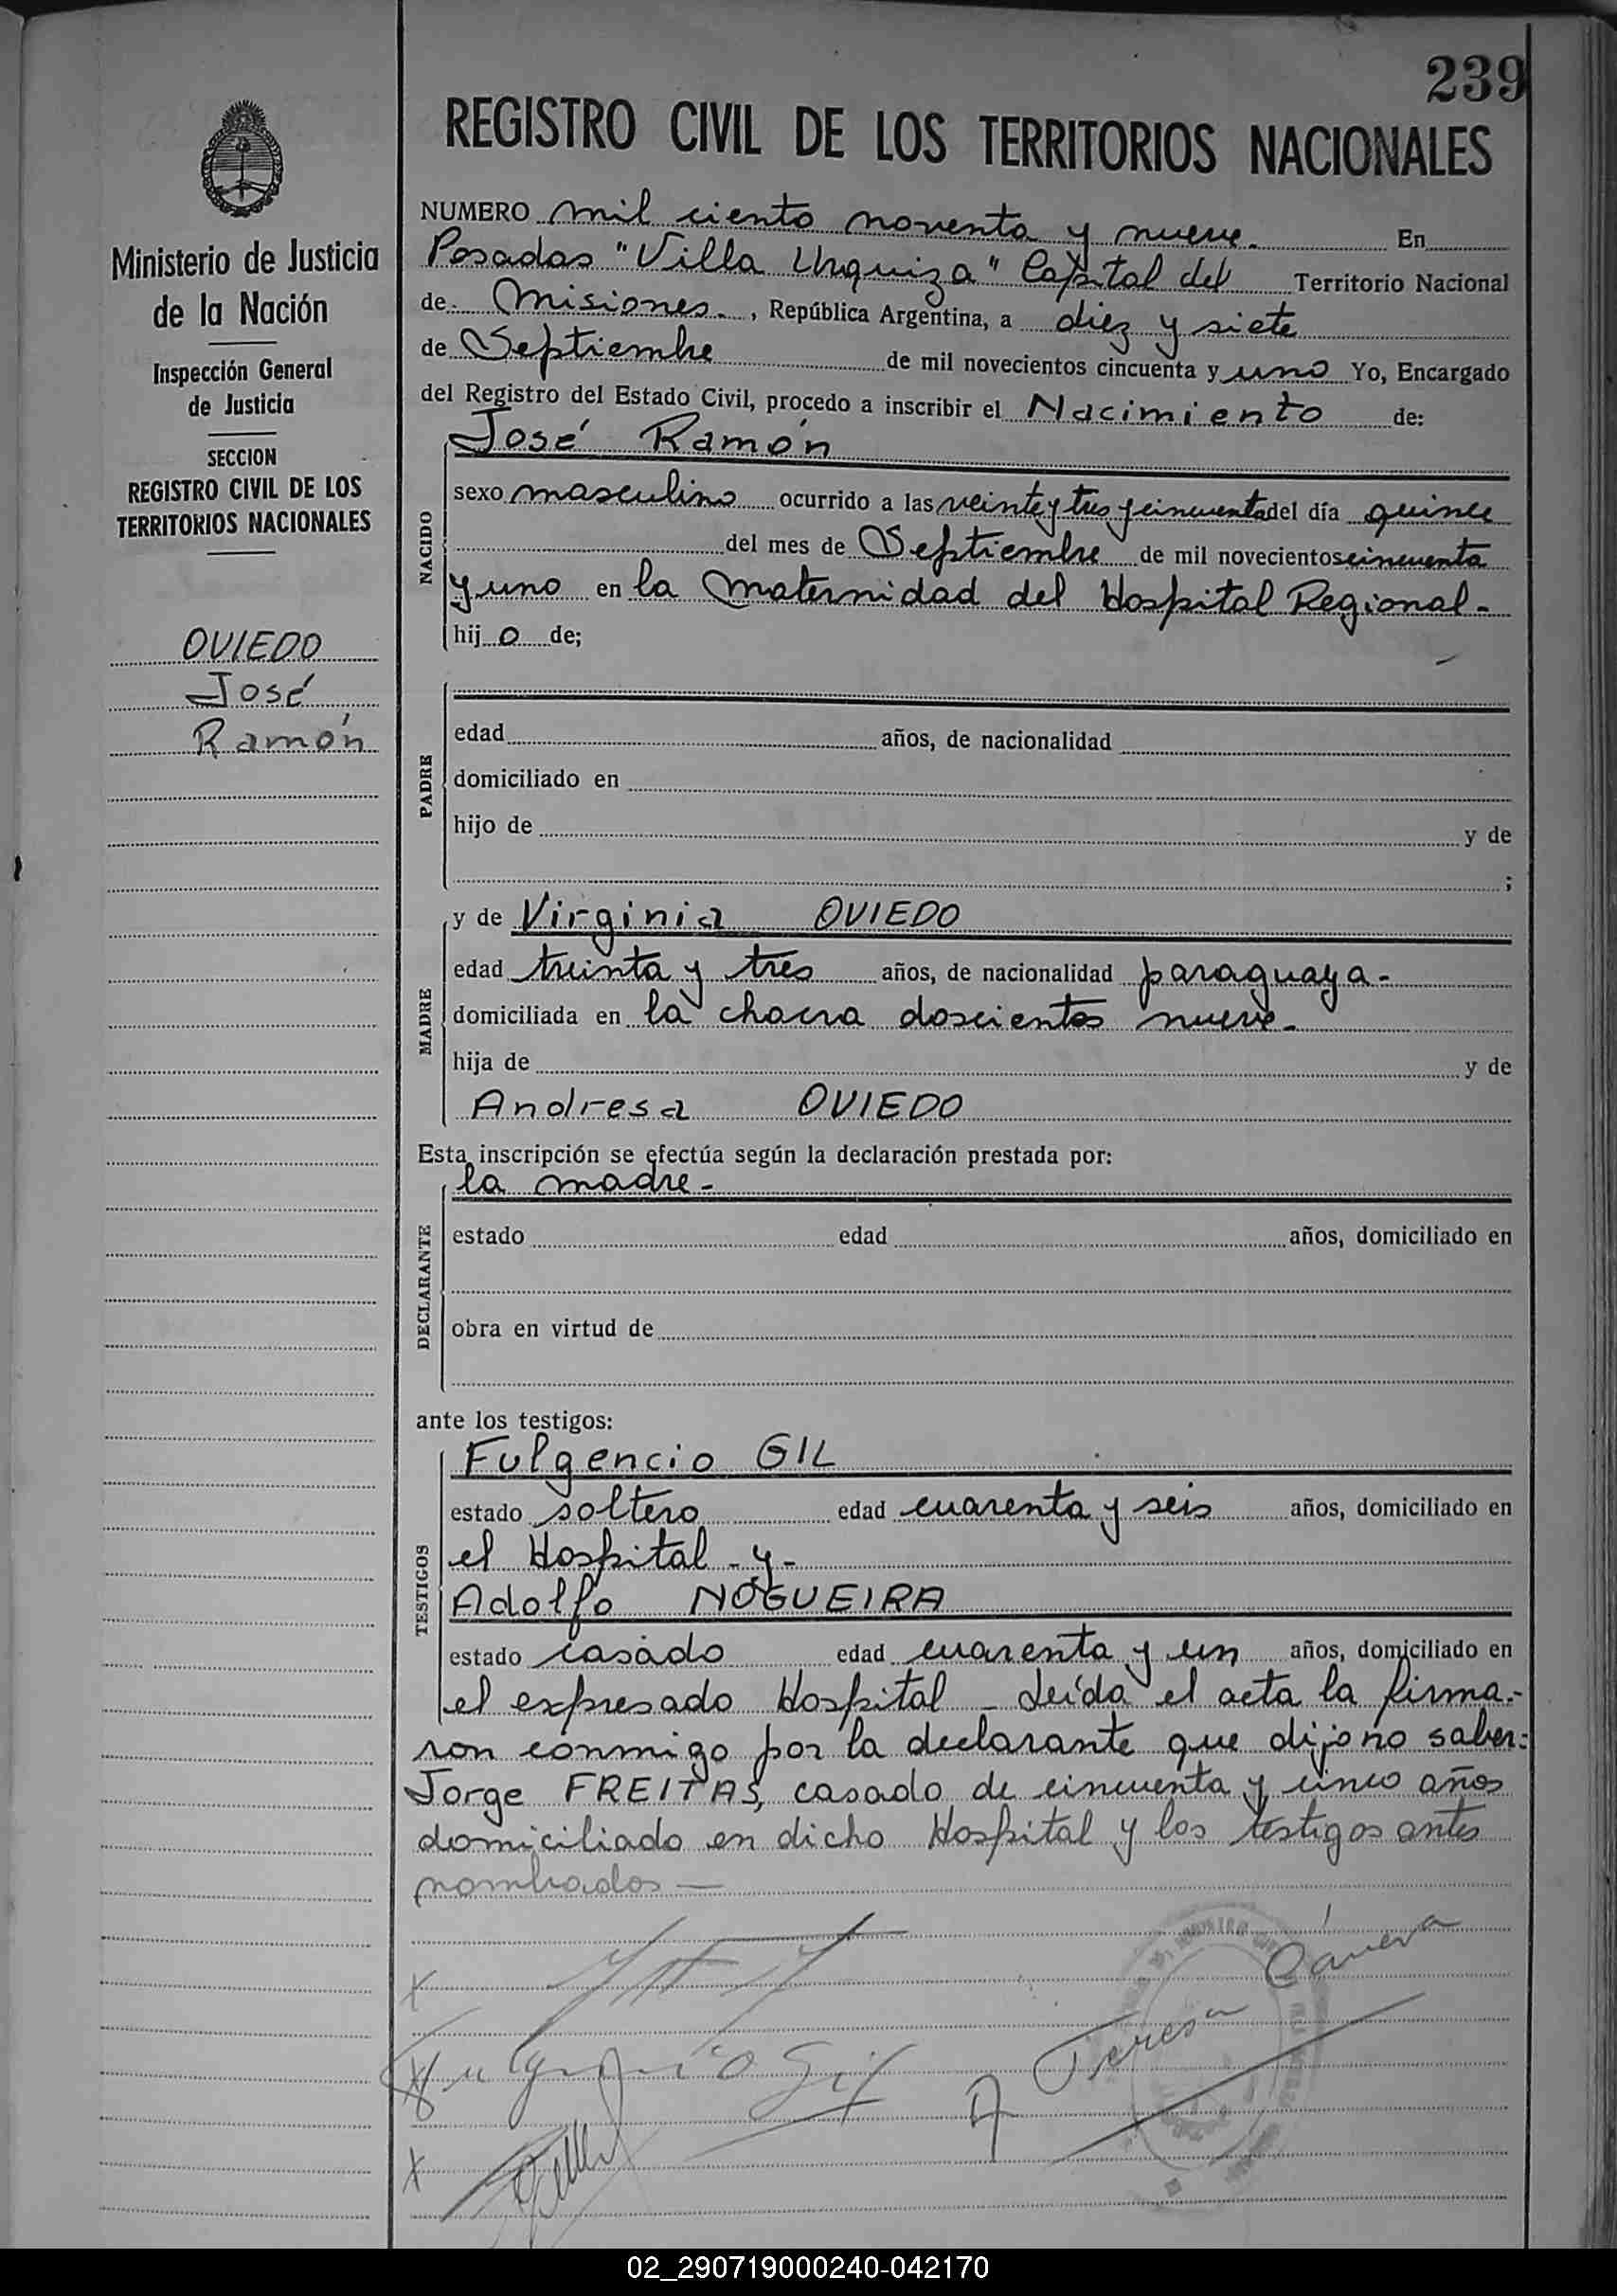 239
REGISTRO CIVIL DE LOS TERRITORIOS NACIONALES
Ministerio de Justicia
de la Nación
Inspección General
de Justicia
SECCION
REGISTRO CIVIL DE LOS
TERRITORIOS NACIONALES
OVIEDO
José
Ramón
NUMERO mil ciento noventa y nueve. En
Posadas "Villa Urquiza" Capital del Territorio Nacional
de Misiones. , República Argentina, a diez y siete
de Septiembre de mil novecientos cincuenta y uno Yo, Encargado
del Registro del Estado Civil, procedo a inscribir el Nacimiento de:
NACIDO
José Ramón
sexo masculino ocurrido a las veinte y tres y cincuenta del día quince
del mes de Septiembre de mil novecientos cincuenta
y uno en la Maternidad del Hospital Regional-
hijo de;
PADRE
edad años, de nacionalidad
domiciliado en
hijo de y de
;
MADRE
y de Virginia OVIEDO
edad treinta y tres años, de nacionalidad paraguaya-
domiciliada en la chacra doscientos nueve-
hija de y de
Andresa OVIEDO
Esta inscripción se efectúa según la declaración prestada por:
DECLARANTE
la madre-
estado edad años, domiciliado en
obra en virtud de
ante los testigos:
TESTIGOS
Fulgencio GIL
estado soltero edad cuarenta y seis años, domiciliado en
el Hospital - y -
Adolfo NOGUEIRA
estado casado edad cuarenta y un años, domiciliado en
el expresado Hospital - Leída el acta la firma.-
ron conmigo por la declarante que dijo no saber:
Jorge FREITAS, casado de cincuenta y cinco años
domiciliado en dicho Hospital y los testigos antes
nombrados —
Fulgencio Gil
Teresa
02_290719000240-042170